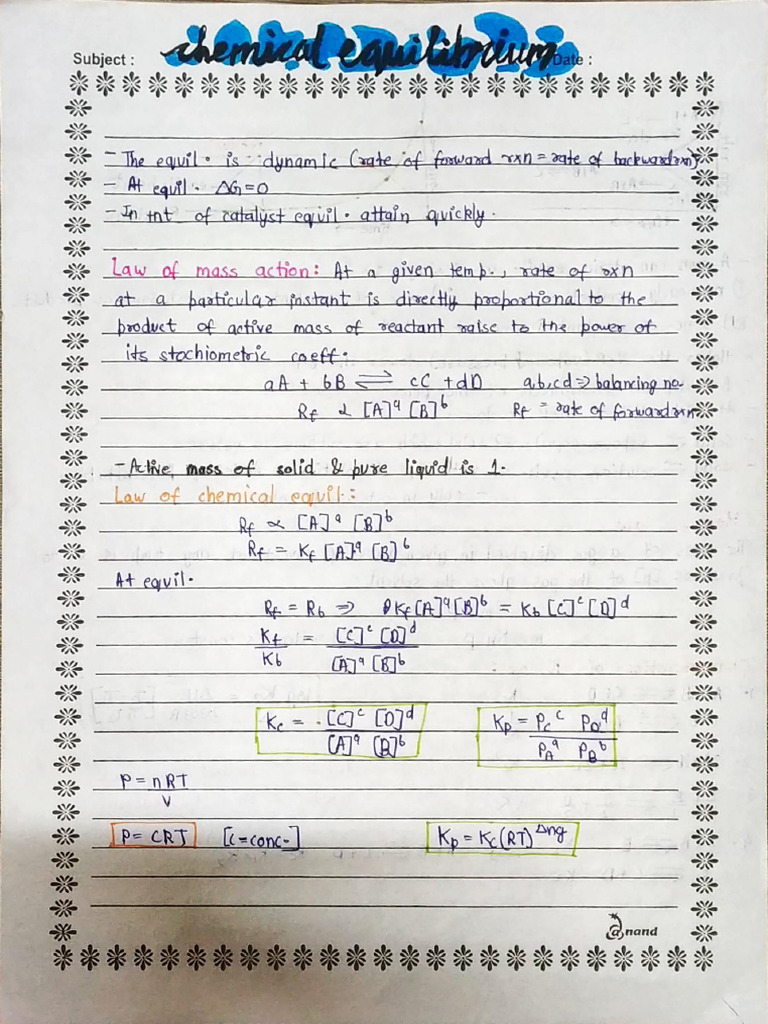 Subject : chemical equilibrium Date :
- The equil. is dynamic (rate of forward rxn = rate of backward rxn)
- At equil. ΔG = 0
- In tnt of catalyst equil. attain quickly.
Law of mass action: At a given temp., rate of rxn
at a particular instant is directly proportional to the
product of active mass of reactant raise to the power of
its stochiometric coeff.
aA + bB ⇌ cC + dD a,b,c,d ⇒ balancing no.
Rf ∝ [A]^a [B]^b Rf = rate of forward rxn
- Active mass of solid & pure liquid is 1.
Law of chemical equil.:
Rf ∝ [A]^a [B]^b
Rf = Kf [A]^a [B]^b
At equil.
Rf = Rb ⇒ Kf [A]^a [B]^b = Kb [C]^c [D]^d
Kf / Kb = [C]^c [D]^d / [A]^a [B]^b
Kc = [C]^c [D]^d / [A]^a [B]^b Kp = Pc^c PD^d / PA^a PB^b
P = nRT / V
P = CRT [C = conc.] Kp = Kc (RT)^Δng
Anand